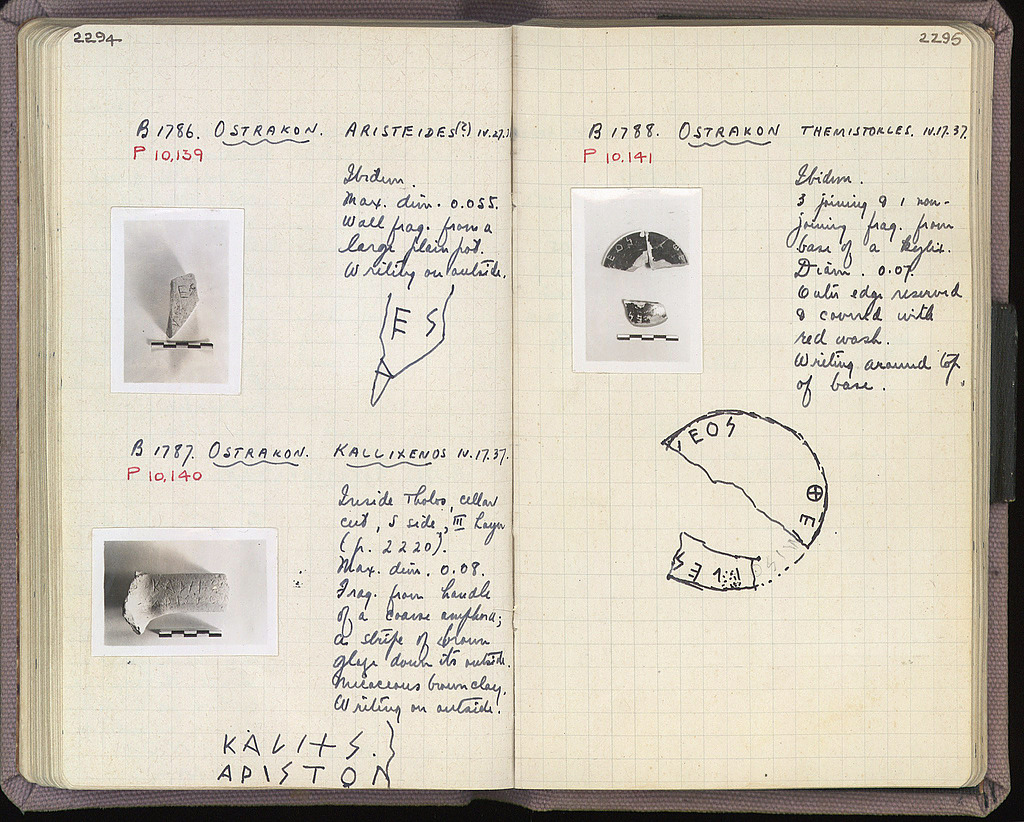 2294
B 1786. OSTRAKON. ARISTEIDES(?) IV.27.
P 10,139
Ibidem.
Max. dim. 0.055.
Wall frag. from a
large plain pot.
Writing on outside.
ES
B 1787. OSTRAKON. KALLIXENOS IV.17.37.
P 10,140
Inside Tholos, cellar
cut, S side, III Layer
(p. 2220).
Max. dim. 0.08.
Frag. from handle
of a coarse amphora;
a stripe of brown
glaze down its outside.
Micaceous brown clay.
Writing on outside.
ΚΑLΙ+S.
ΑΡΙSΤΟΝ
2295
B 1788. OSTRAKON THEMISTOKLES. IV.17.37.
P 10.141
Ibidem.
3 joining & 1 non-
joining frag. from
base of a kylix.
Diam. 0.07.
Outer edge reserved
& covered with
red wash.
Writing around top
of base.
LEOS
⊕ EM
ES